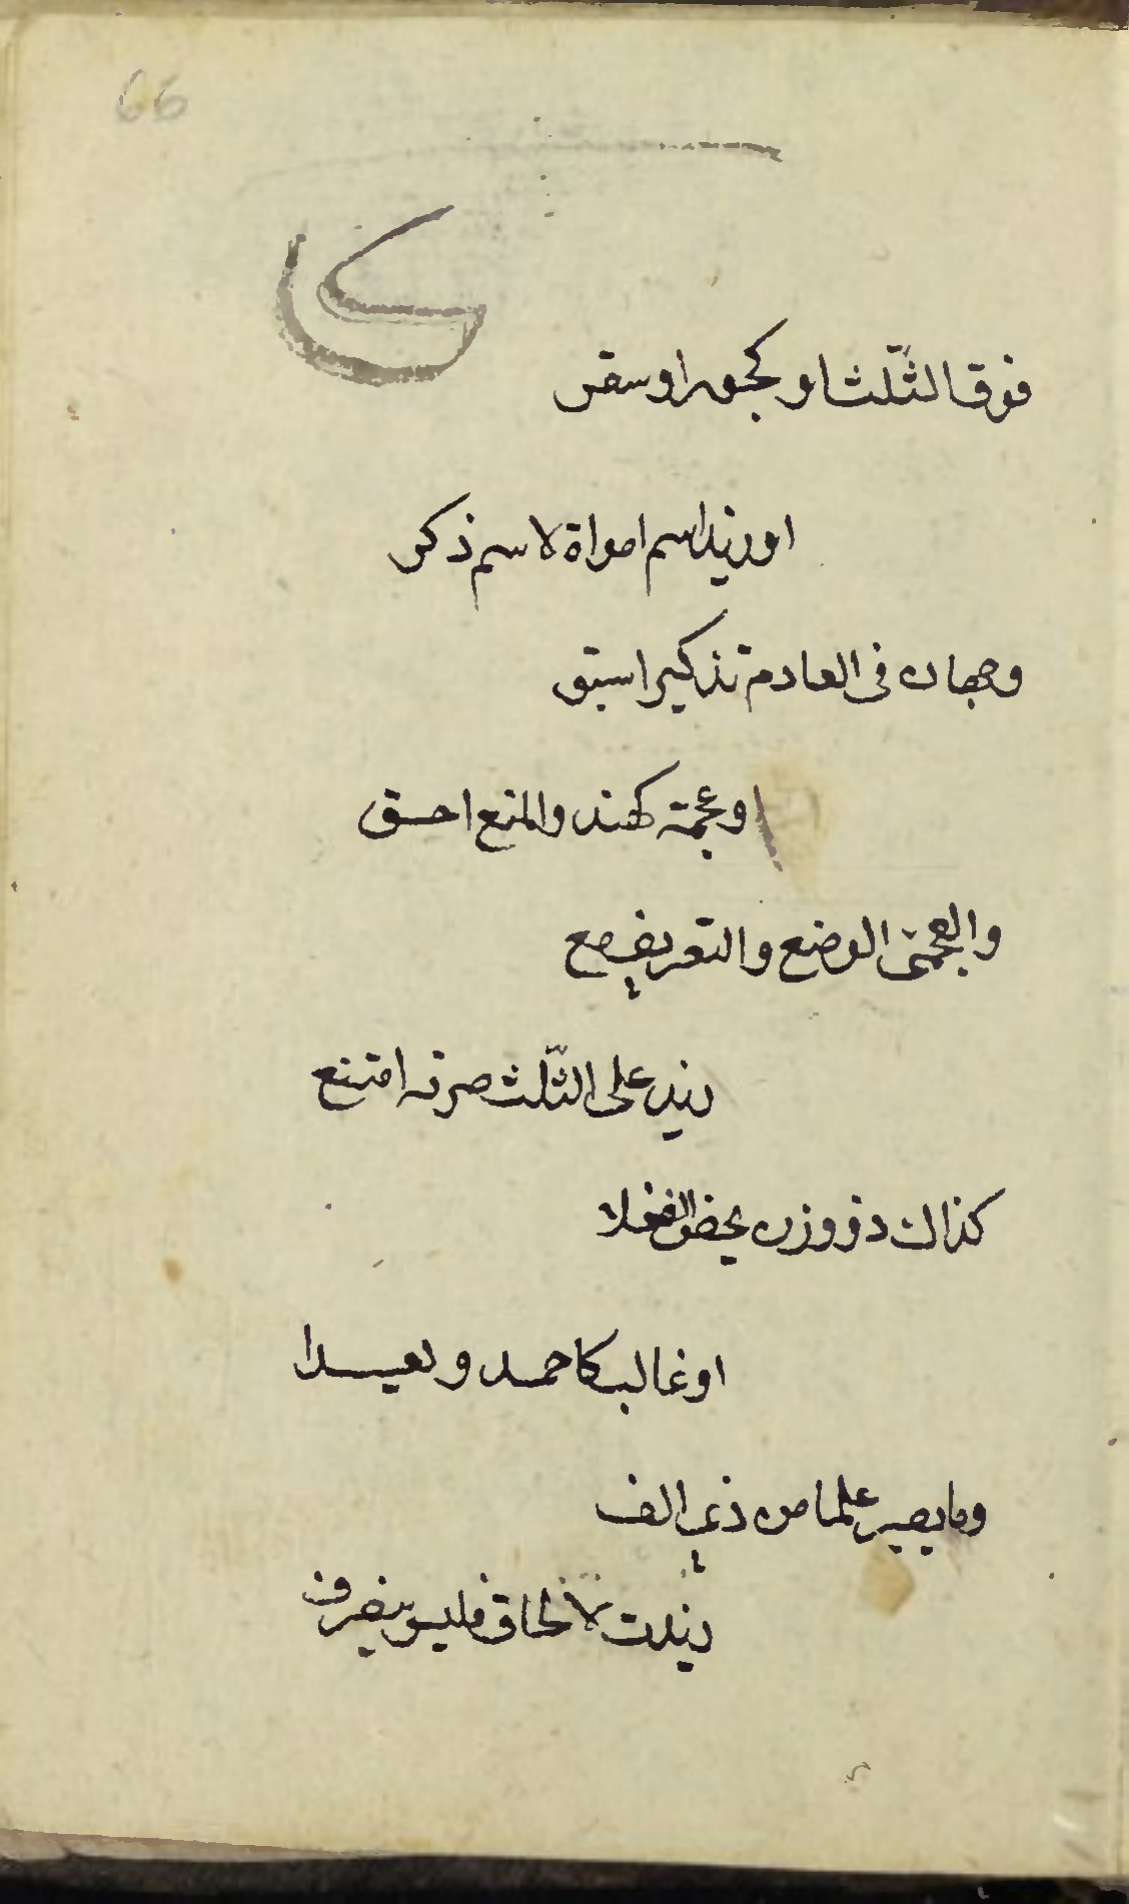 66
فوق الثّلث او كجور او سقر
او زيد اسم امراة لا اسم ذكر
وجهان فى العادم تذكيرا سبق
وعجمة كهند والمنع احق
والعجمىّ الوضع والتعريف مع
زيد على الثّلث صرفه امتنع
كذاك ذو وزن يخص الفعلا
او غالب كاحمد ويعلا
وما يصير علما من ذى الف
زيدت لالحاق فليس ينصرف